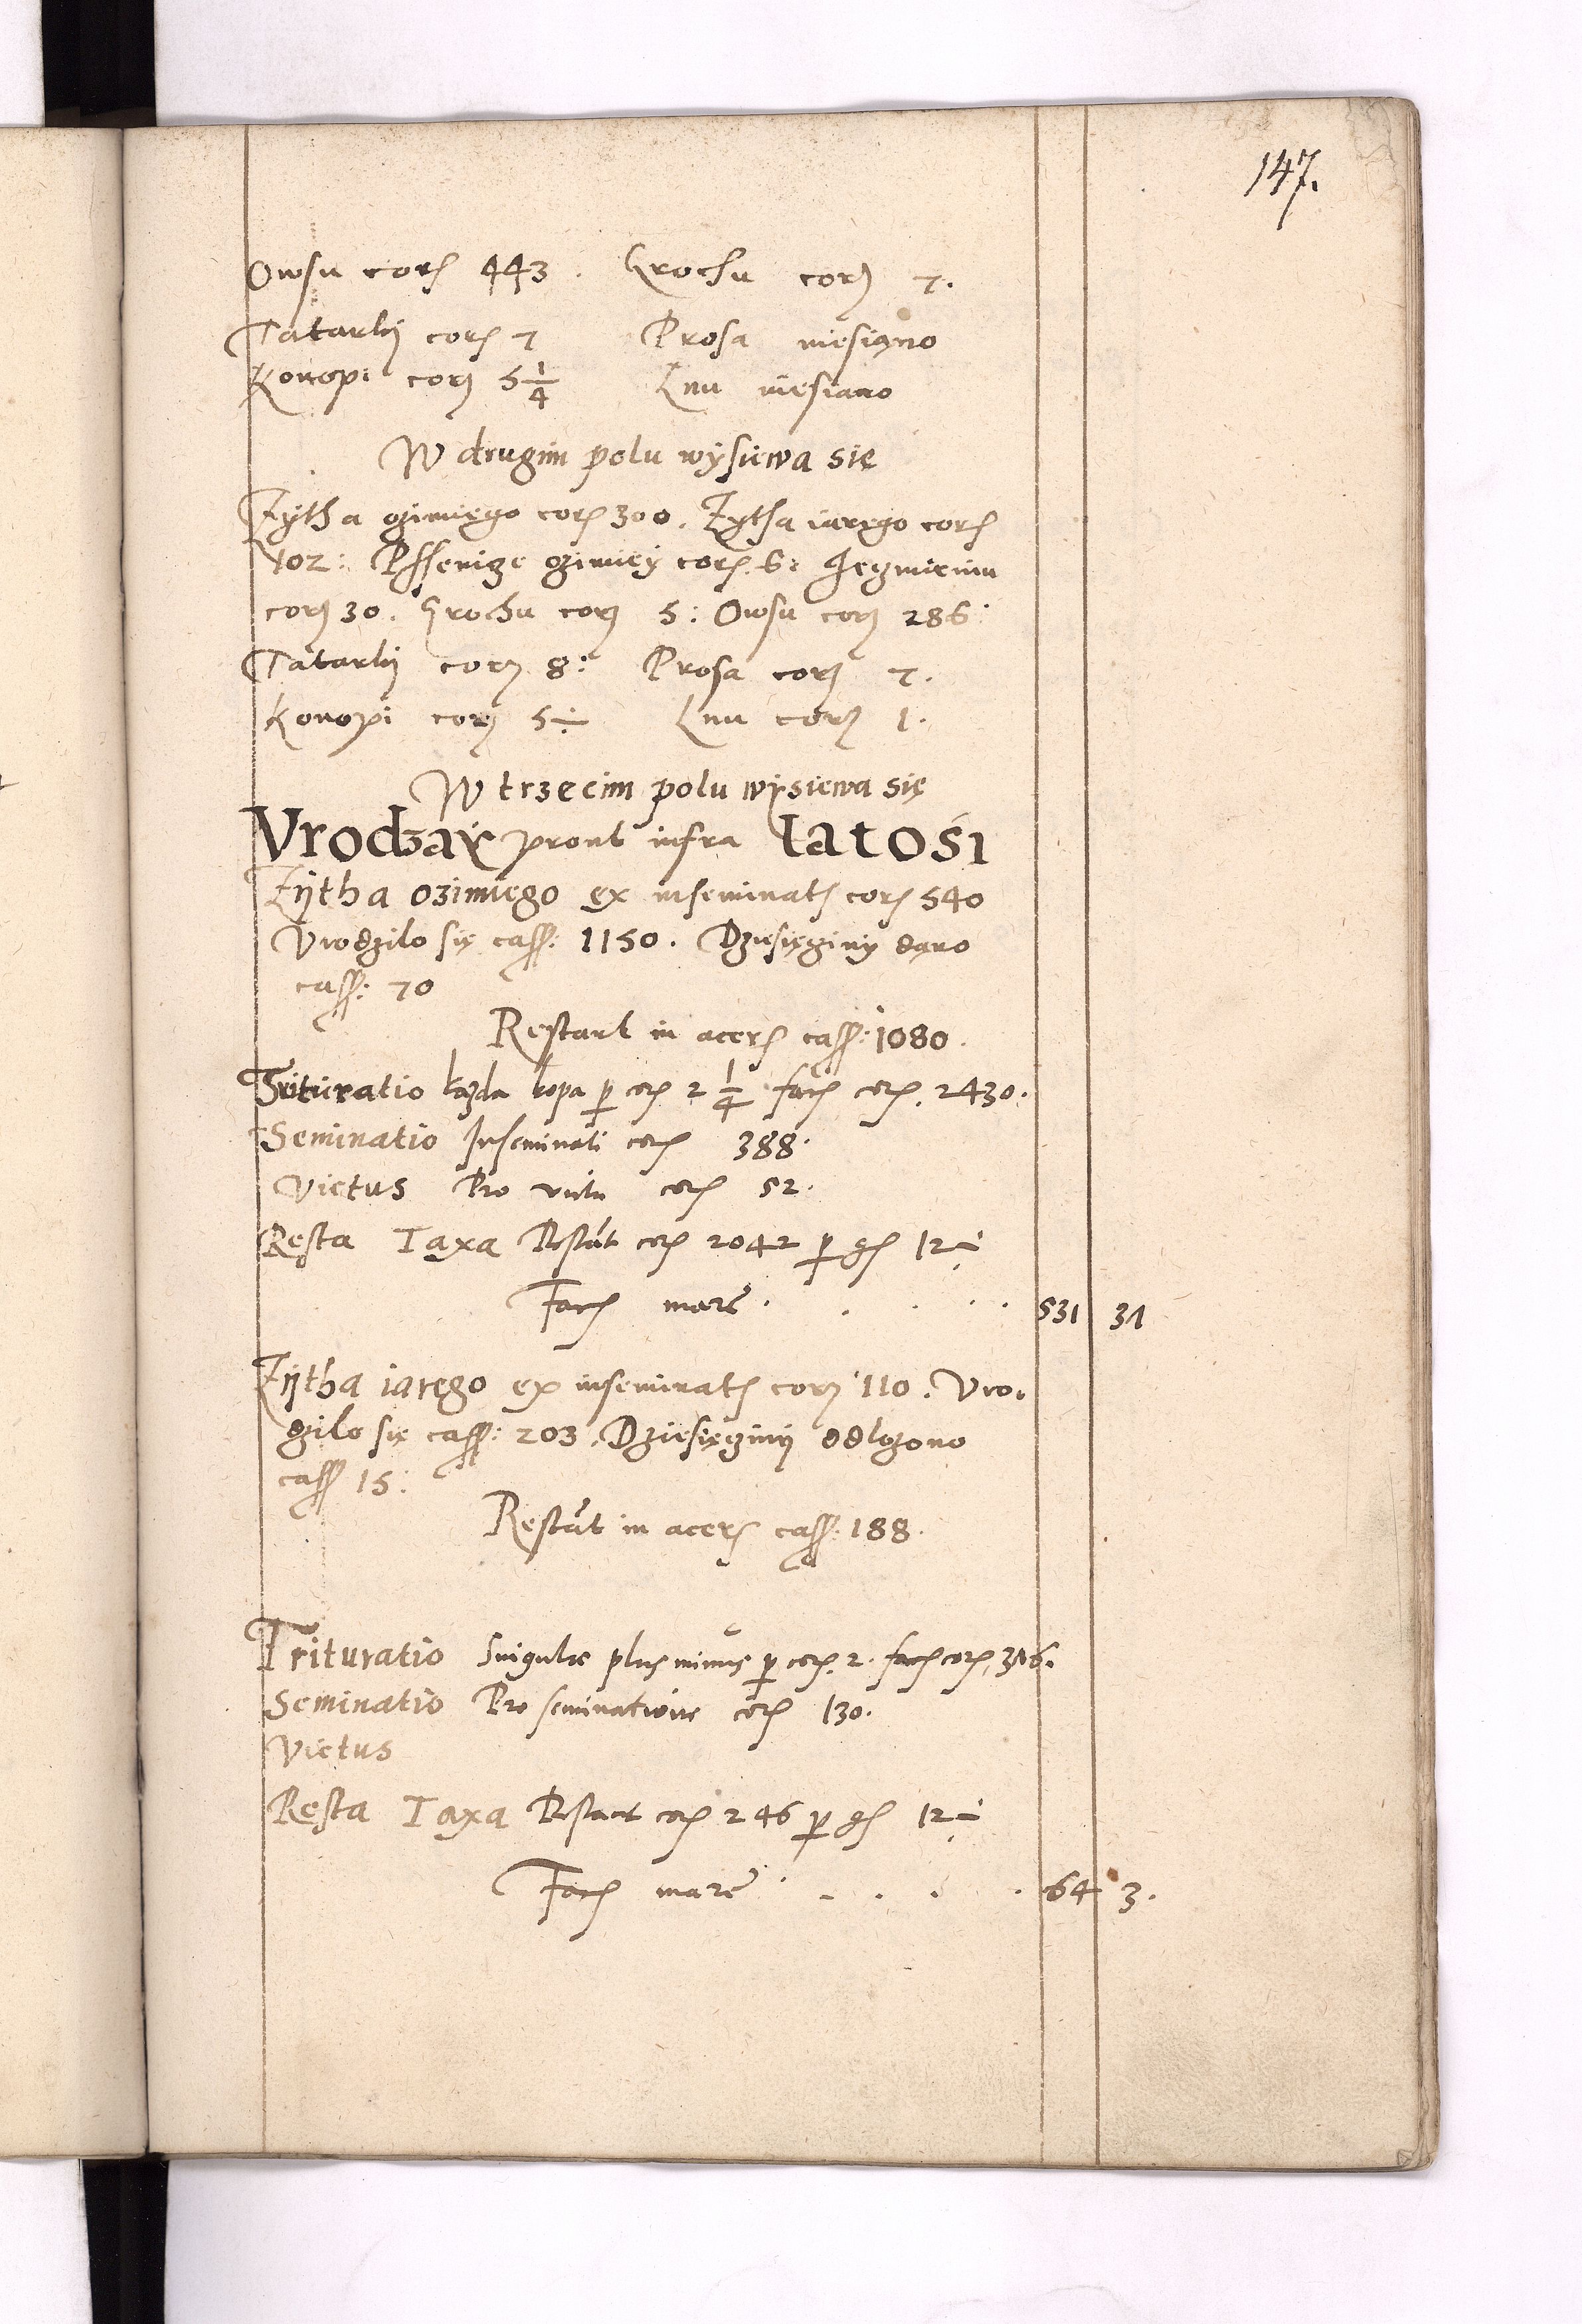 147.
Owsu corꝭ 443. Grochu corꝭ 7.
Tatarki corꝭ 7 Prosa niesiąno
Konopi corꝭ 5 1/4 Lnu niesiano
W drugim polu wysiewa się
Zytha ozimięgo corꝭ 300. Zytha iaręgo corꝭ
102: Pssenize ozimiey corꝭ 6: Jęzmieniu
corꝭ 30. Grochu corꝭ 5: Owsu corꝭ 286:
Tatarki corꝭ 8: Prosa corꝭ 7.
Konopi corꝭ 5 ÷ Lnu corꝭ 1.
W trzecim polu wysiewa się
Vrodzaÿ prout infra latosi
Zÿtha ozimiego ex inseminatꝭ corꝭ 540
Vrodzilo się cass: 1150. Dziesięziny dąno
cass: 70
Restant in acerꝭ cass: 1080.
Trituratio kazda kopa ꝑ corꝭ 2 1/4 facꝭ corꝭ. 2430.
Seminatio Inseminati corꝭ 388.
Victus Pro victu corꝭ 52.
Resta Taxa Restāt corꝭ 2042 ꝑ gꝭ 12 ÷
Facꝭ marc̄ . . . . 531 31
Zÿtha iaręgo ex inseminatꝭ corꝭ 110. Vro-
dzilo się cass: 203. Dziesięzinÿ odlozono
cass 15:
Restāt in acerꝭ cass: 188.
Trituratio Singulae plus minus ꝑ corꝭ. 2. facꝭ corꝭ. 376.
Seminatio Pro seminatione corꝭ 130.
Victus
Resta Taxa Restant corꝭ 246 ꝑ gꝭ 12 ÷
Facꝭ marc̄ . . . . 64 3.